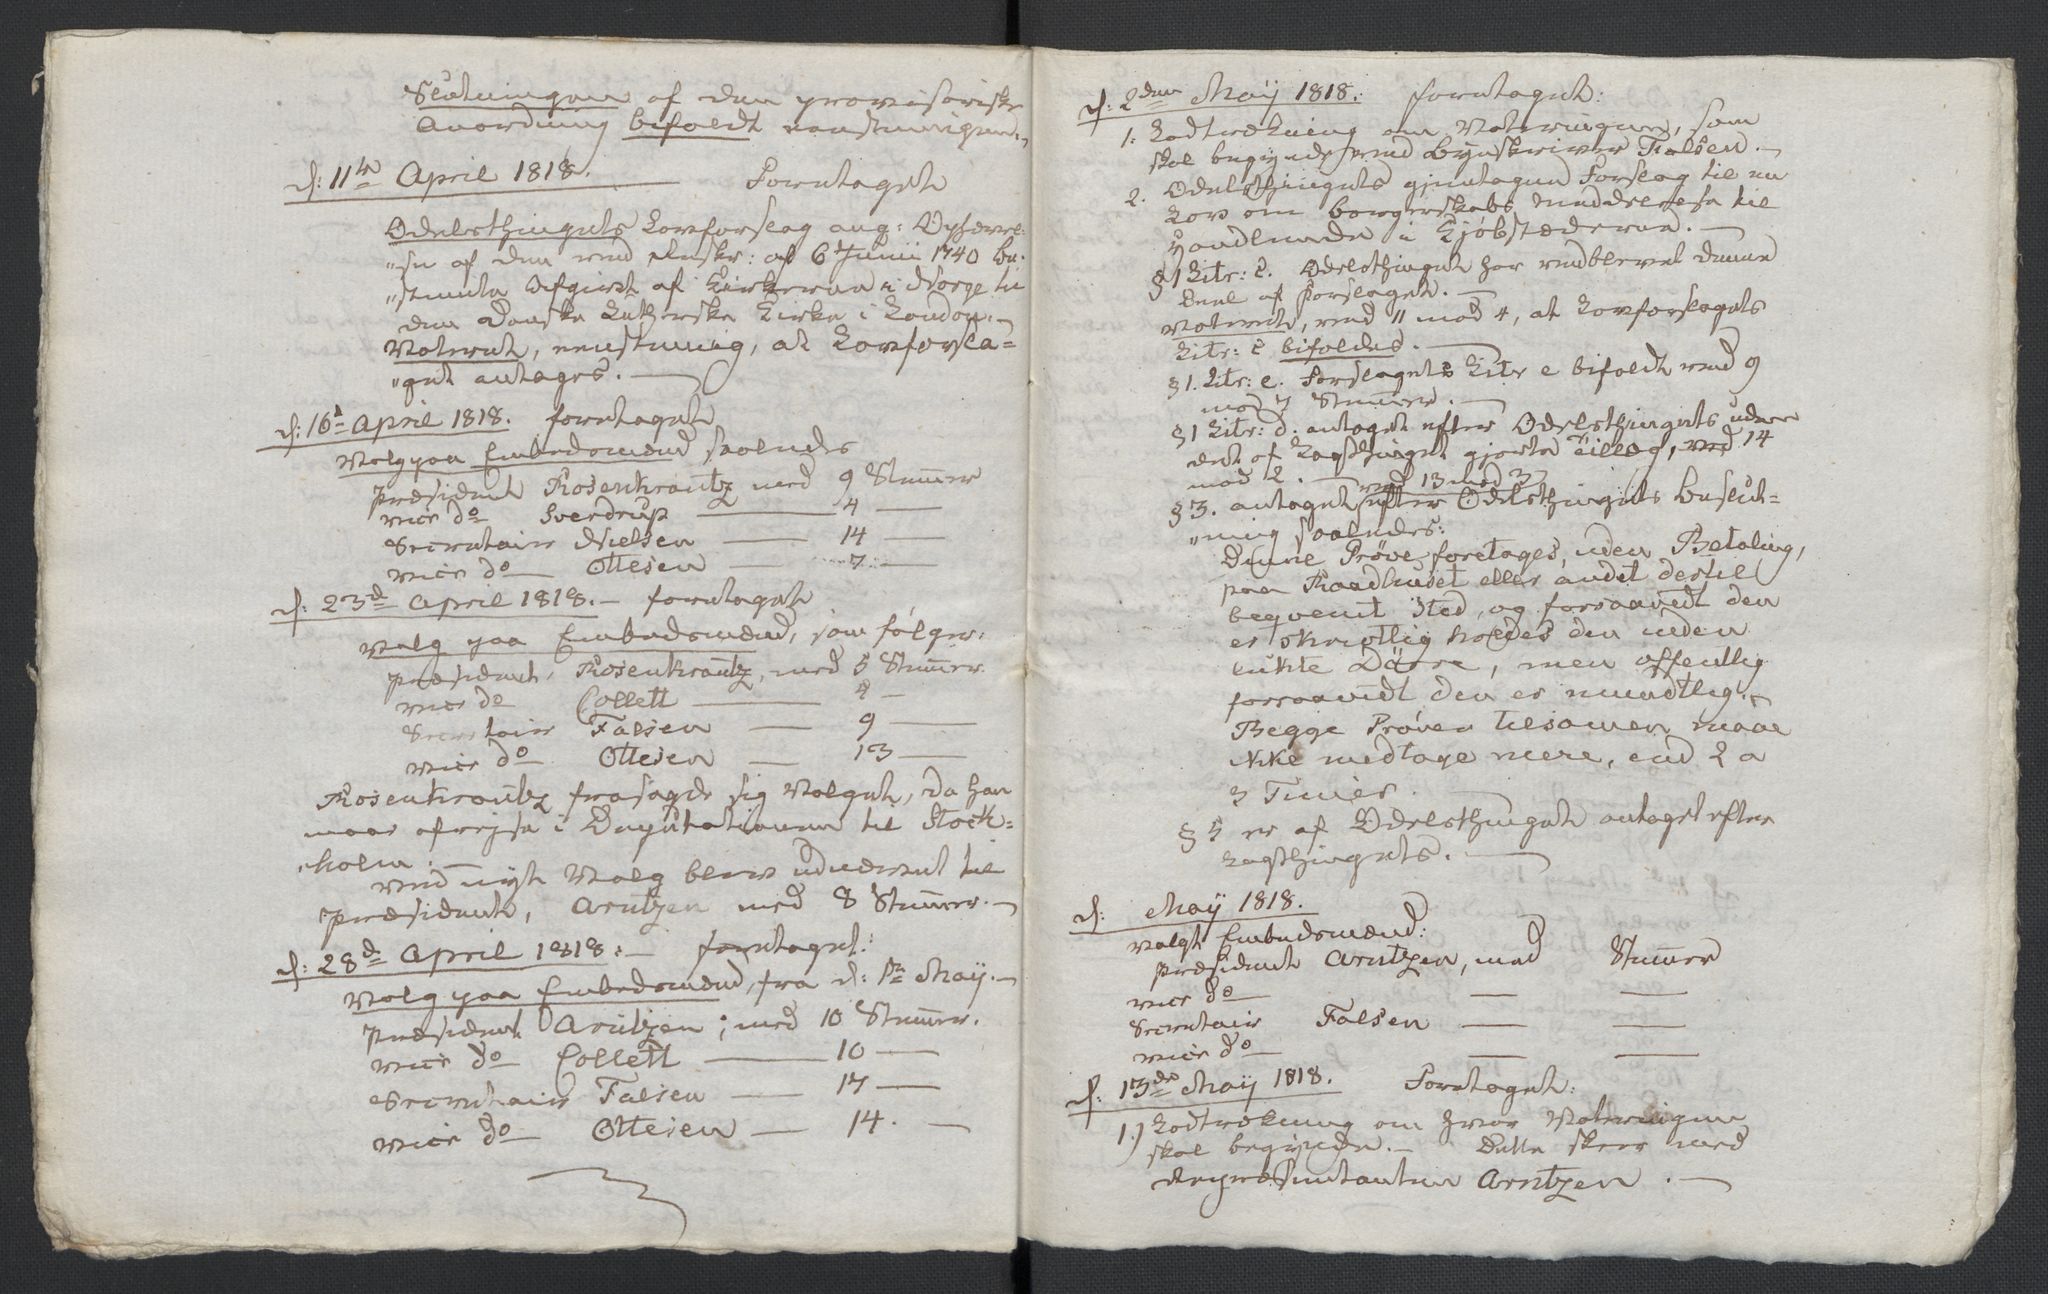 Slutningen af den provisoriske
Anordning bifaldt eenstemmigen.
d: 11te April 1818. Foretaget
Odelsthingets Lovforslag ang: Ophævel-
"se af den ved Rescr: af 6 Junii 1740 be-
"stemte Afgivt af Kirkerne i Norge til
den Danske Lutherske Kirke i London.
Voteret, eenstemig, at Lovforsla-
"get antages.
d: 16d April 1818. foretaget
Valg paa Embedsmænd saaledes
Præsident Rosenkrantz med 9 Stemmer
vice do Sverdrup — 4 —
Secretair Nielsen — 14 —
vice do — Ottesen — 7 —
d: 23d April 1818. — foretaget
Valg paa Embedsmænd, som følger:
Præsident, Rosenkrantz, med 5 Stemmer.
vice do Collett — 4 —
Secretair Falsen — 9 —
vice do Ottesen — 13 —
Rosenkrantz frasagde sig Valget, da han
maae afrejse i Deputationen til Stock-
"holm. —
Ved nyt Valg blev udnævnt til
Præsident, Arntzen med 8 Stemmer. —
d: 28d April 1818. — foretaget:
Valg paa Embedsmænd, fra d: 1te May. —
Præsident Arntzen, med 10 Stemmer.
vice do — Collett — 10 —
Secretair Falsen — 17 —
vice do — Ottesen — 14. —
d: 2den May 1818. foretaget:
1. Lodtrækning om Voteringen, som
skal begynde med Byeskriver Falsen. —
2. Odelsthingets gjentagen Forslag til en
Lov om Borgerskabs Meddelelse til
Handlende i Kjøbstæderne. —
§ 1 Litr: c. Odelsthinget har vedblevet denne
Deel af Forslaget. —
Voteret, med 11 mod 4, at Lovforslagets
Litr: c bifaldes. —
§ 1. Litr: e. Forslagets Litr e bifaldt med 9
mod 7 Stemmer. —
§ 1 Litr: d. antaget efter Odelsthingets uden
det af Lagthinget gjorte Tillæg, med 14
mod 2. — med 13 mod 3
§ 3. antaget efter Odelsthingets Beslut-
"ning saaledes:
Denne Prøve foretages, uden Betaling,
paa Raadhuset eller andet dertil
beqvemt Sted, og forsaavidt den
er skriftlig holdes den inden
lukte Dörre, men offentlig
forsaavidt den er mundtlig. —
Begge Prøver tilsamen maae
ikke medtage mere, end 2 a
3 Timer. —
§ 5 er af Odelsthinget antaget efter
Lagthingets. —
d: May 1818.
Valgt Embedsmænd:
Præsident Arntzen, med Stemmer
vice do — — —
Secretair Falsen — —
vice do — — —
d: 13de May 1818. Foretaget:
1.) Lodtrækning om hvor Voteringen
skal begynde. — Dette skeer med
Repræsentanten Arntzen. —